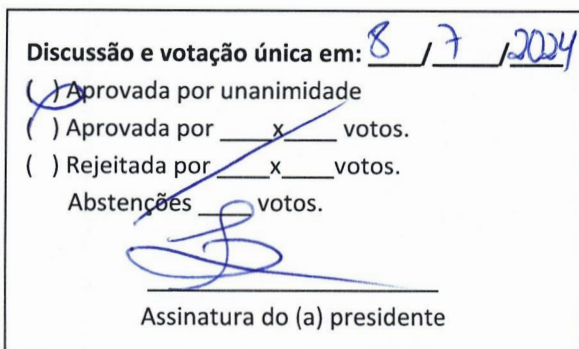 Discussão e votação única em: 8 / 7 / 2024
( ) Aprovada por unanimidade
( ) Aprovada por ____x____ votos.
( ) Rejeitada por ____x____votos.
Abstenções ____votos.
Assinatura do (a) presidente